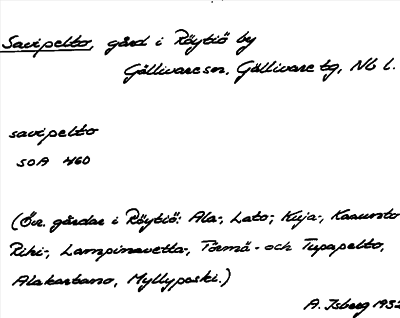 Savipelto, gård i Röytiö by
Gällivare sn, Gällivare tg, Nb l.
savipelto
SOA 460
(Öv. gårdar i Röytiö: Ala-, Lato-, Kuja-,
Rihi-, Lampinavetta-, Törmä- och Tupapelto,
Alakartano, Myllyposki.)
A. Isberg 1932